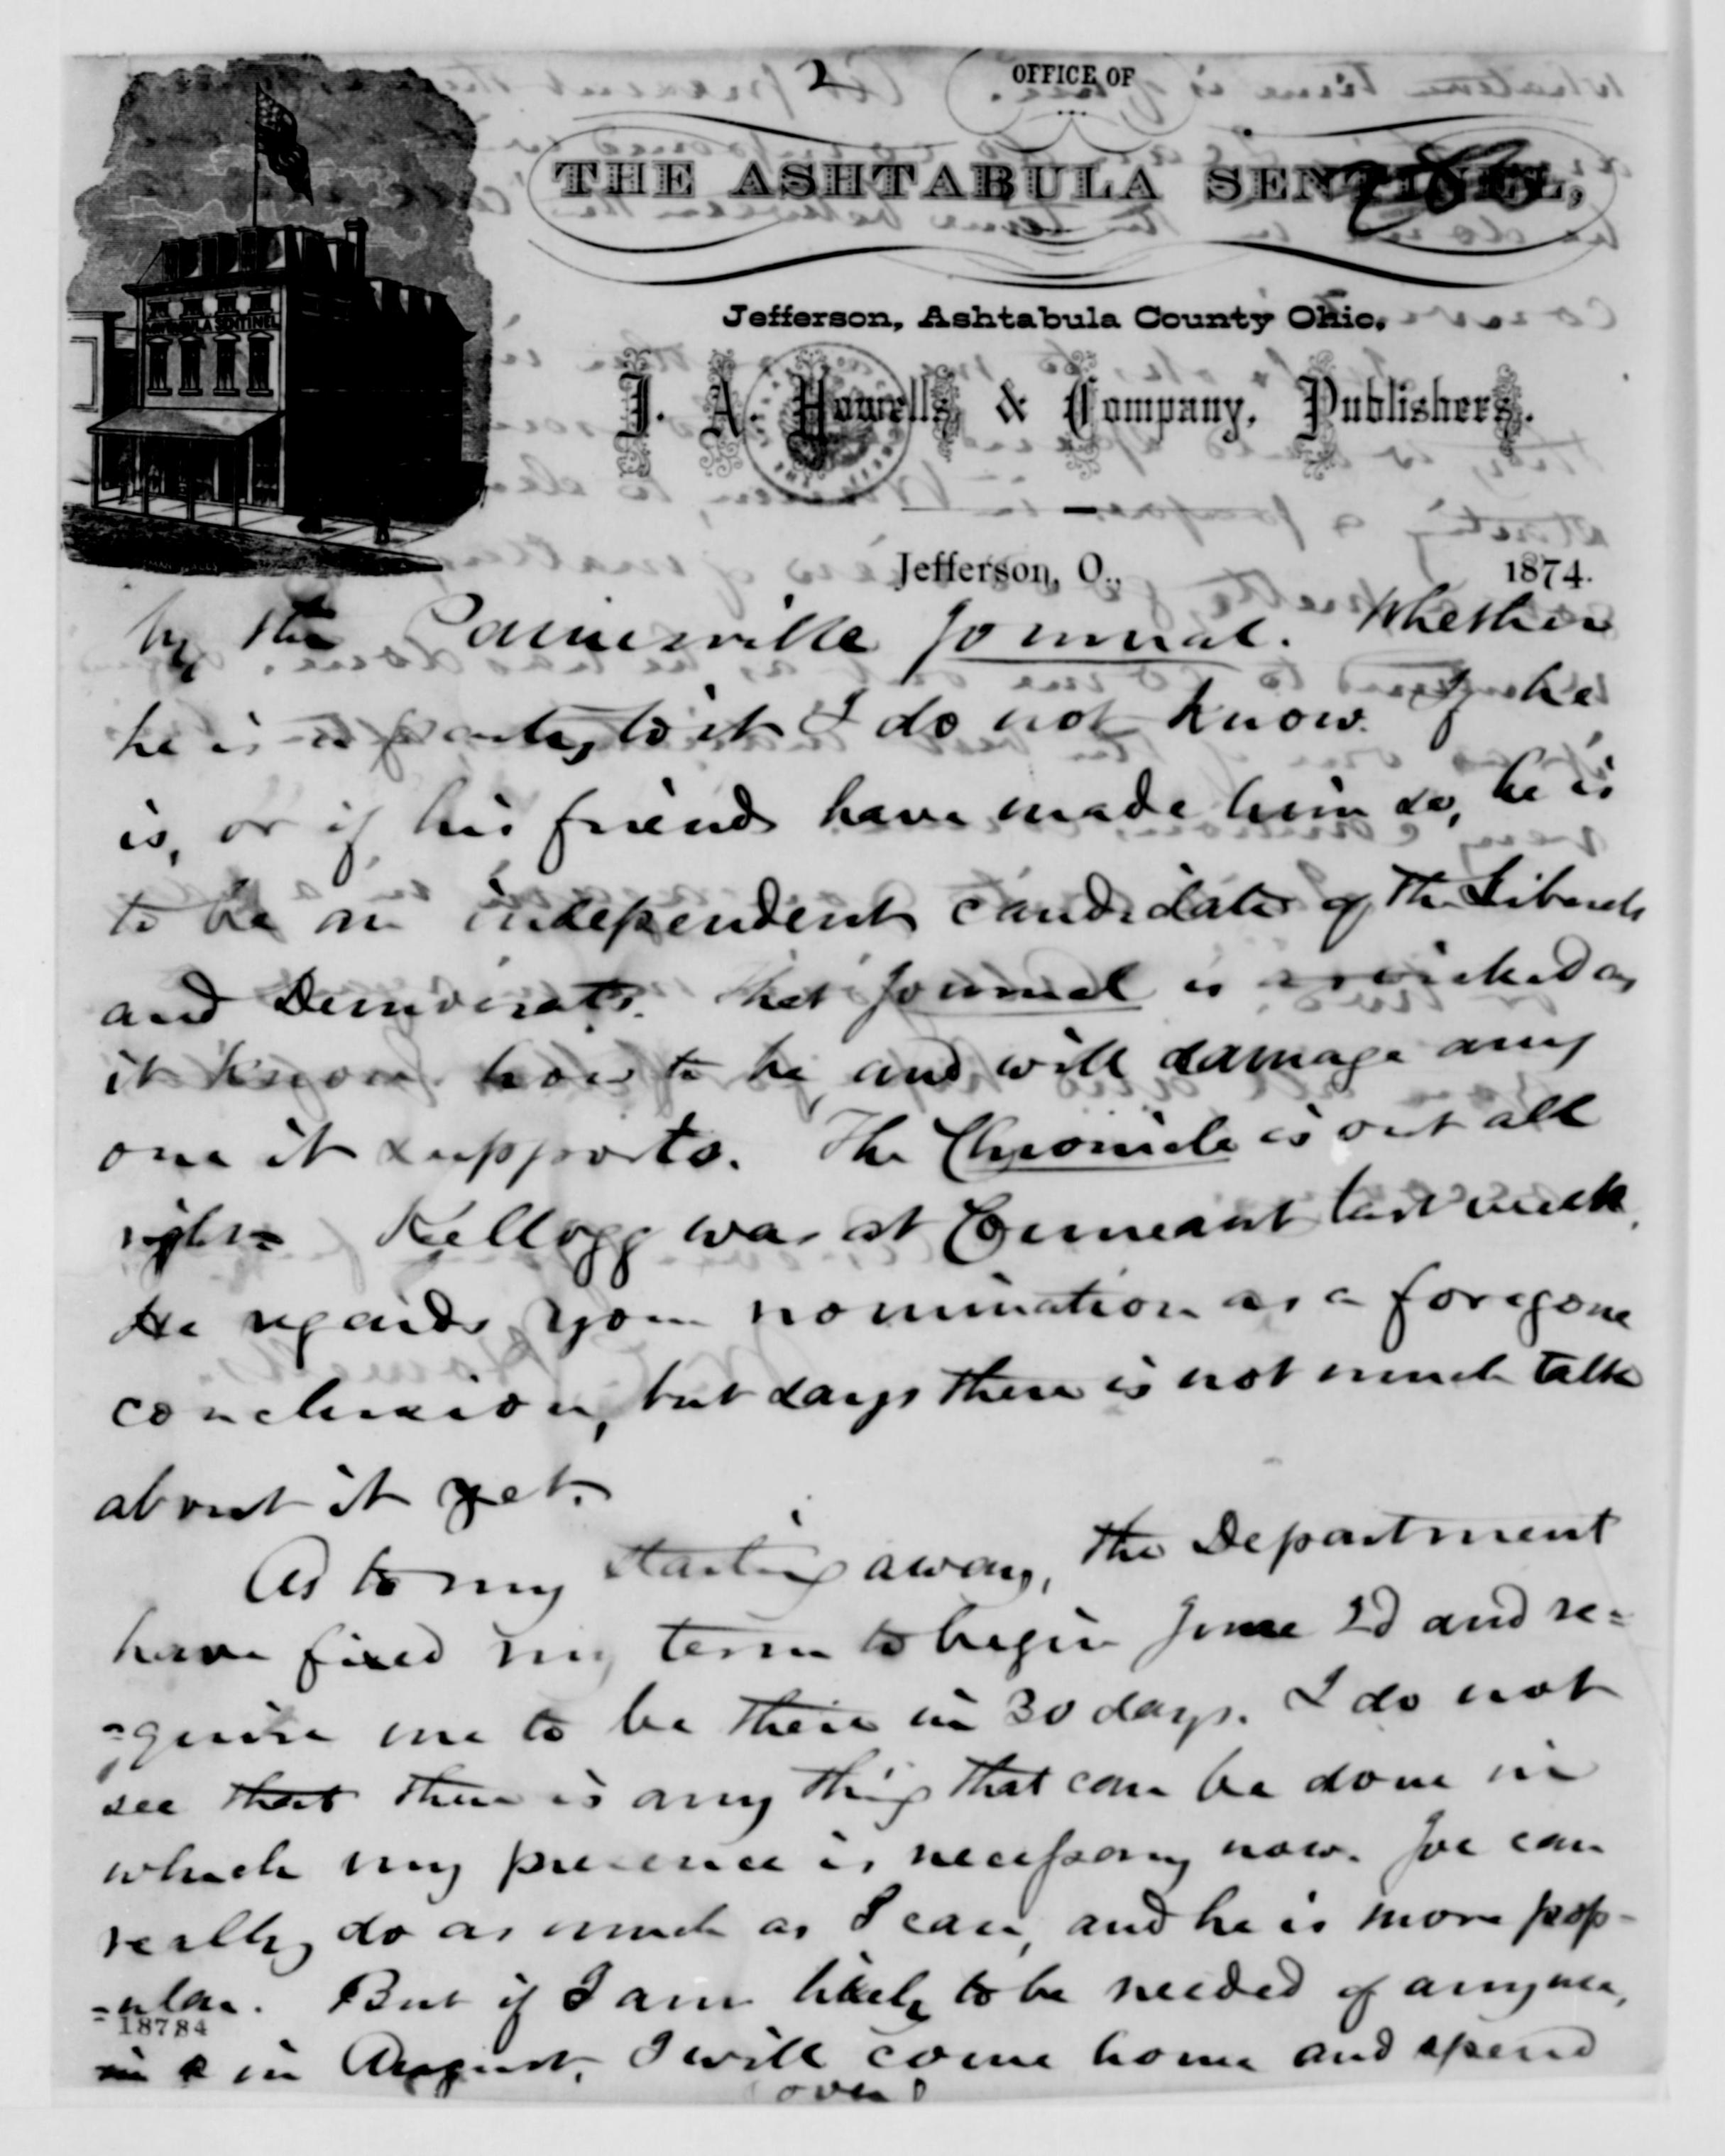 2
OFFICE OF
THE ASHTABULA SENTINEL,
ASHTABULA SENTINEL
Jefferson, Ashtabula County Ohio,
J. A. Howells & Company, Publishers.
Jefferson, O., 1874.
by the Painesville Journal. Whether
he is a party to it I do not know. If he
is, or if his friends have made him so, he is
to be an independent candidate of the Liberals
and Democrats. That Journal is as wicked as
it knows how to be, and will damage any
one it supports. The Chronicle is out all
right. Kellogg was at Conneaut last week.
He regards your nomination as a foregone
conclusion, but says there is not much talk
about it yet.
As to my starting away, the Department
have fixed my term to begin June 2d and re=
=quire me to be there in 30 days. I do not
see that there is any thing that can be done in
which my presence is necessary now. Joe can
really do as much as I can, and he is more pop-
=ular. But if I am likely to be needed of any use,
18784
in August, I will come home and spend
(over)